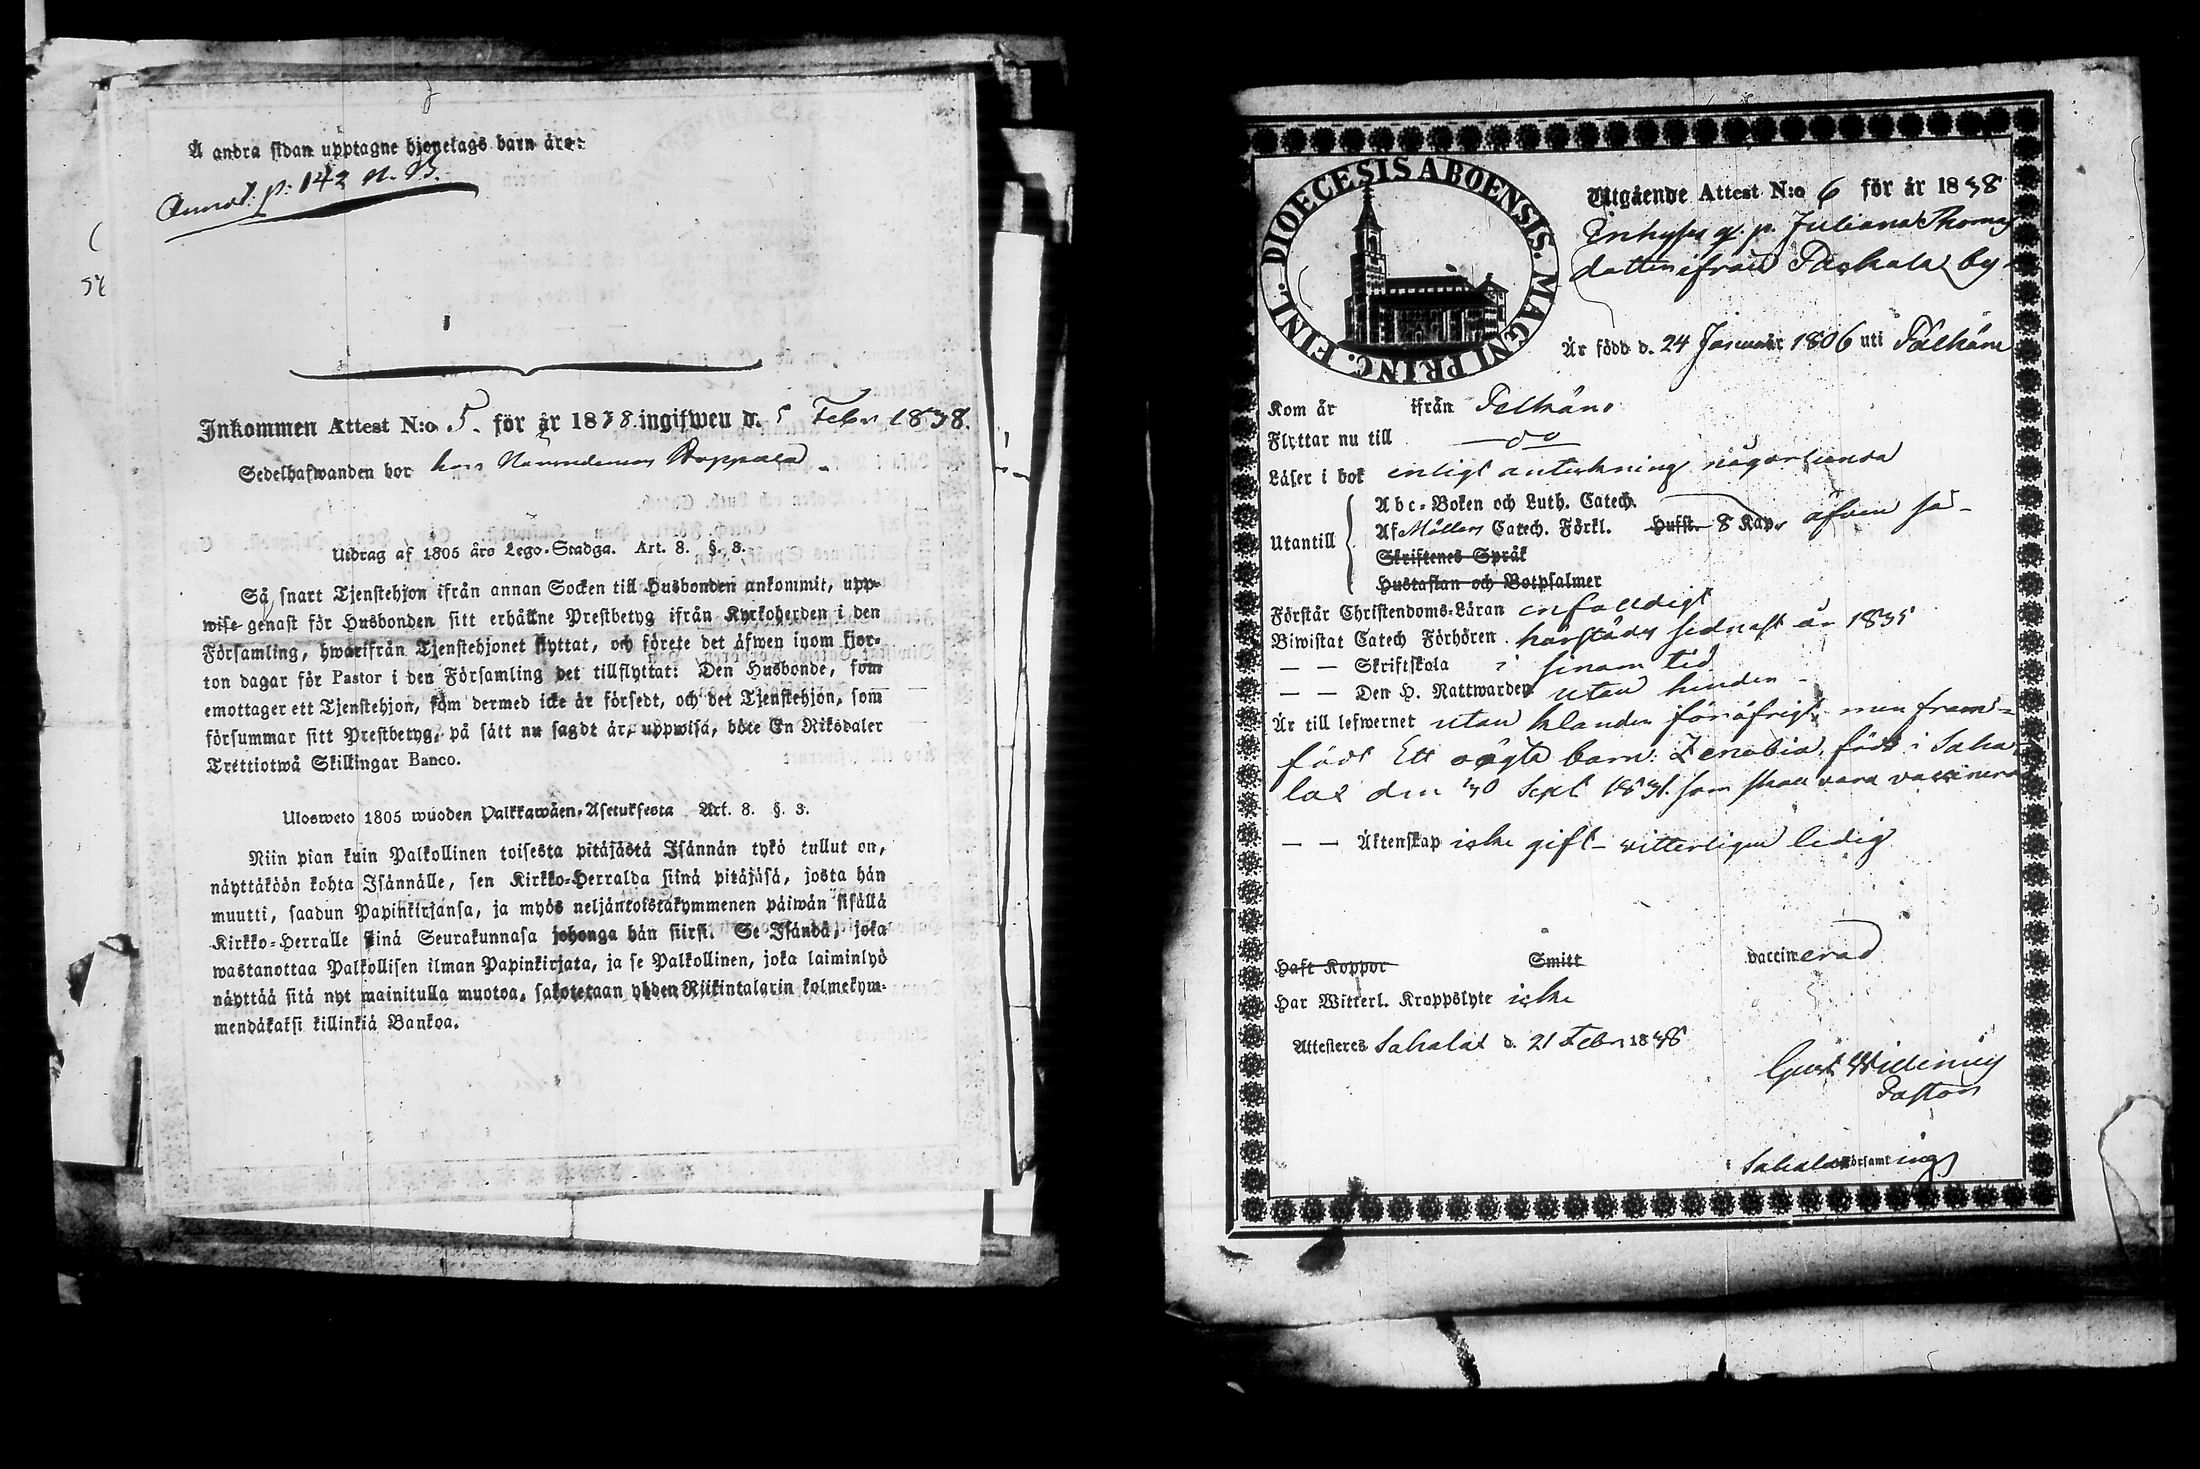 Å andra sidan upptagne hjonelags barn äro:
Annot. p: 142 N. B.
54
Inkommen Attest N:o 5. för år 1838 ingifwen d. 5 Febr 1838.
Sedelhafwanden bor hos
Utdrag af 1805 års Lego-Stadga. Art. 8. §. 3.
Så snart Tjenstehjon ifrån annan Socken till Husbonden ankommit, upp-
wise genast för Husbonden sitt erhållne Prestbetyg ifrån Kyrkoherden i den
Församling, hwarifrån Tjenstehjonet flyttat, och förete det äfwen inom fjor-
ton dagar för Pastor i den Församling det tillflyttat: Den Husbonde, som
emottager ett Tjenstehjon, som dermed icke är försedt, och det Tjenstehjon, som
försummar sitt Prestbetyg, på sätt nu sagdt är, uppwisa, böte En Riksdaler
Trettiotwå Skillingar Banco.
Ulosweto 1805 wuoden Palkkawäen-Asetuksesta Art. 8. §. 3.
Niin pian kuin Palkollinen toisesta pitäjästä Isännän tykö tullut on,
näyttäköön kohta Isännälle, sen Kirkko-Herralda siinä pitäjäsä, josta hän
muutti, saadun Papinkirjansa, ja myös neljäntoistakymmenen päiwän sisällä
Kirkko-Herralle siinä Seurakunnasa johonga hän siirsi. Se Isändä, joka
wastanottaa Palkollisen ilman Papinkirjata, ja se Palkollinen, joka laiminlyö
näyttää sitä nyt mainitulla muotoa, sakotetaan yhden Riikintalarin kolmekym-
mendäkaksi killinkiä Bankoa.
DIOECESIS ABOENSIS. MAGNI PRINC. FINL.
Utgående Attest N:o 6 för år 1838
Inhyses q. p. Juliana Thomas
dotter ifrån Paskala by
Är född d. 24 Januar 1806 uti Pelkäne
Kom år ifrån Pelkäne
Flyttar nu till do
Läser i bok enligt anteckning någorlunda
Utantill
Abc-Boken och Luth. Catech.
Af Möllers Catech. Förkl. Hufst. 8 Kap. äfven så
Skriftenes Språk
Hustaflan och Botpsalmer
Förstår Christendoms-Läran enfaldigt
Biwistat Catech Förhören härstädes sednast år 1835
— — Skriftskola i sinom tid
— — Den H. Nattwarden utan hinder
Är till lefwernet utan klander för öfrigt, men fram-
födt Ett oägta barn: Zenobia, född i Saha
lax den 30 Sept. 1831. som skall vara vaccinerad
— — Äktenskap icke gift - vitterligen ledig
Haft Koppor Smitt vaccinerad
Har Witterl. Kroppslyte icke
Attesteres Sahalax d. 21 Febr 1838
Gust. Widenius
Pastor
Sahalax Församling